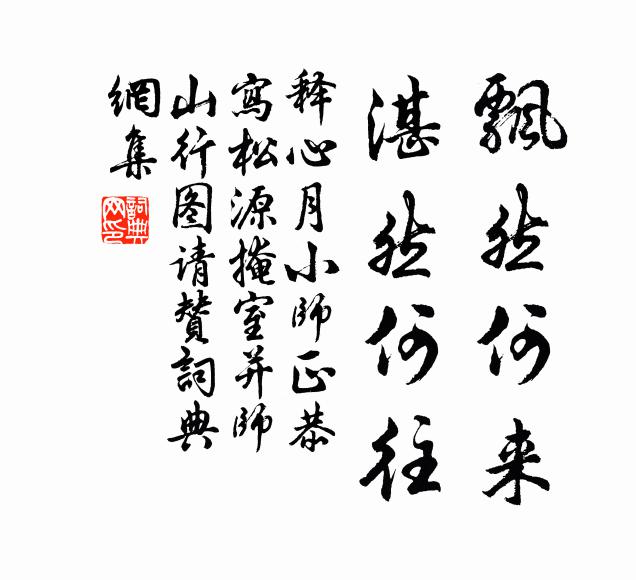 飄然何来
湛然何往
释心月小師正恭
寫松源掩室并師
山行图请赞詞典
網集
詞典网印